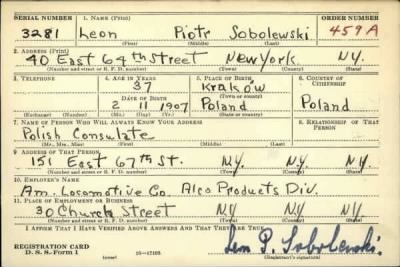 SERIAL NUMBER 1. NAME (Print) ORDER NUMBER
3281 Leon Piotr Sobolewski 459A
(First) (Middle) (Last)
2. ADDRESS (Print)
40 East 64th Street New York N.Y.
(Number and street or R. F. D. number) (Town) (County) (State)
3. TELEPHONE 4. AGE IN YEARS 5. PLACE OF BIRTH 6. COUNTRY OF CITIZENSHIP
37 Kraków
DATE OF BIRTH (Town or county)
2 11 1907 Poland Poland
(Exchange) (Number) (Mo.) (Day) (Yr.) (State or country)
7. NAME OF PERSON WHO WILL ALWAYS KNOW YOUR ADDRESS 8. RELATIONSHIP OF THAT PERSON
Polish Consulate
(Mr., Mrs., Miss) (First) (Middle) (Last)
9. ADDRESS OF THAT PERSON
151 East 67th St. N.Y. N.Y. N.Y.
(Number and street or R. F. D. number) (Town) (County) (State)
10. EMPLOYER'S NAME
Am. Locomotive Co. Alco Products Div.
11. PLACE OF EMPLOYMENT OR BUSINESS
30 Church Street N.Y. N.Y.
(Number and street or R. F. D. number) (Town) (County) (State)
I AFFIRM THAT I HAVE VERIFIED ABOVE ANSWERS AND THAT THEY ARE TRUE.
REGISTRATION CARD
D. S. S. Form 1 (over) 16—17105 Leon P. Sobolewski
(Registrant's signature)